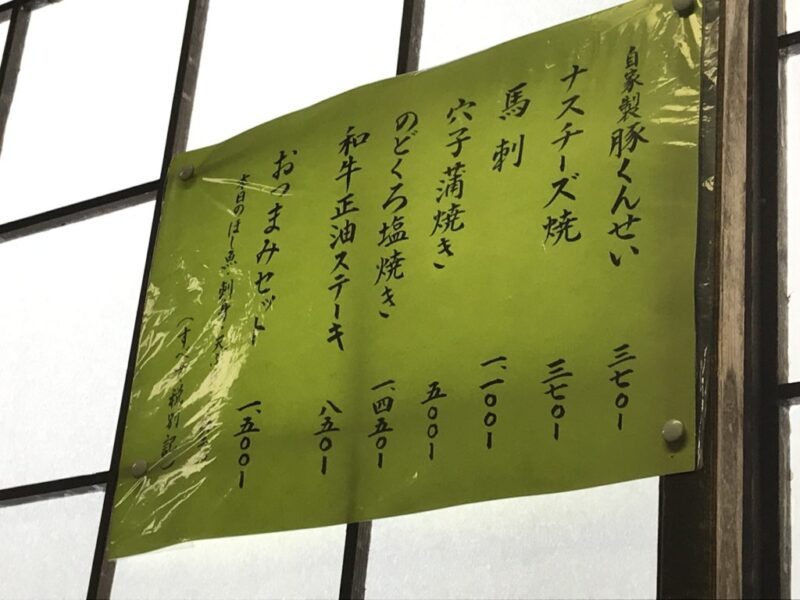 自家製豚くんせい 三七〇ー
ナスチーズ焼 三七〇ー
馬刺 一、一〇〇ー
穴子蒲焼き 五〇〇ー
のどくろ塩焼き 一、四五〇ー
和牛正油ステーキ 八五〇ー
おつまみセット 一、五〇〇ー
本日のほし魚 刺身
税別記)